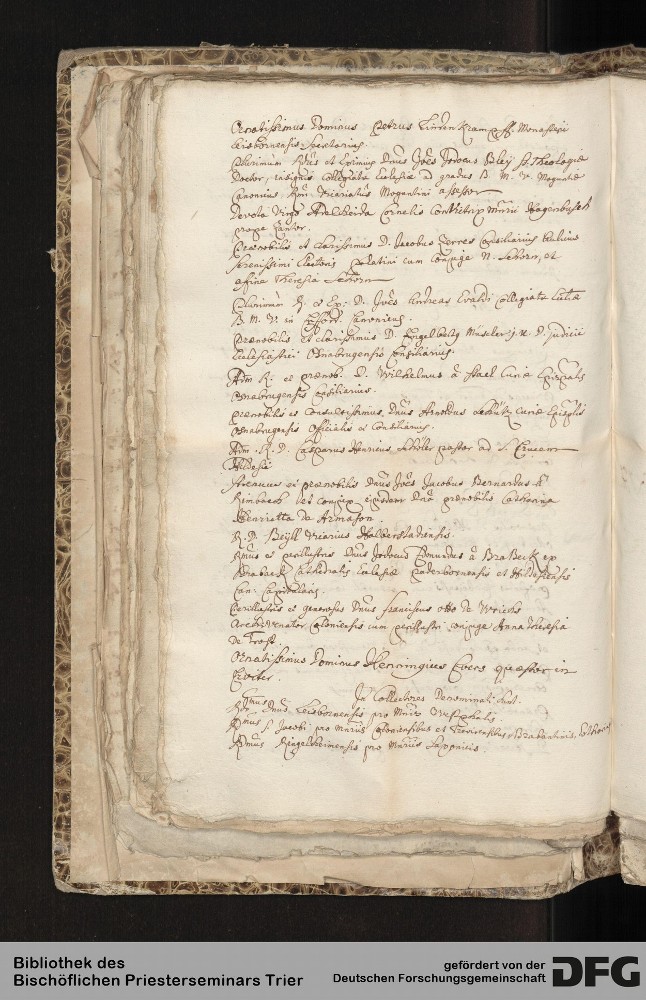 Ornatissimus Dominus Petrus Monasterii
Leisbornensis Secretarius.
Plurimum Rdus et Eximius Dnus Joes Jodocus Bley SS. Theologiae
Doctor, insignis Collegiatae Ecclesiae ad gradus B. M. V. Moguntiae
Canonicus, Vicariatus Moguntini assessor
Devota Virgo Adelheida Cornelis Hagenbusch
prope Xanten.
Praenobilis et clarissimus D. Jacobus Consiliarius
Serenissimi Electoris palatini cum conjuge N. Schorn, et
affine Theresia Schorn
Plurimum R. et Ex. D. Joes Andreas Evaldi Collegiatae
B. M. V. in Canonicus.
Praenobilis et clarissimus D. Engelbertg judicii
Ecclesiastici Osnabrugensis Consiliarius.
Adm R. et praenob. D. Wilhelmus à Stael Curiae
Osnabrugensis Consiliarius.
praenobilis et Consultissimus Dnus Arnoldus Curiae
Osnabrugensis Officialis et Consiliarius.
Adm. R. D. Casparus Henricus pastor ad S. Crucem
Hildesii
Strenuus et praenobilis Dnus Joes Jacobus Bernardus à
Rimbach et conjux ejusdem Dna praenobilis Catharina
Henrietta de
R. D. Beÿll Vicarius Halberstadiensis.
Rmus et perillustris Dnus Jodocus Edmundus à BraBeck ex
Cathedralis Ecclesiae paderbornensis et Hildesiensis
Can: Capitularis.
Perillustris et generosus Dnus franciscus otto de
Archivenator Coloniensis cum perillustri conjuge Anna Theresia
de Trost.
Ornatissimus Dominus Henningius Evers quaestor in

In Collectores Denominati sunt.
Rdmus Dnus Leisbornensis pro Westphalis.
Rdmus S. Jacobi pro Coloniensibus et Trevirensibus, Brabantinis,
Rdmus Ringelheimensis pro Saxonicis.
Bibliothek des
Bischöflichen Priesterseminars Trier
gefördert von der
Deutschen Forschungsgemeinschaft
DFG